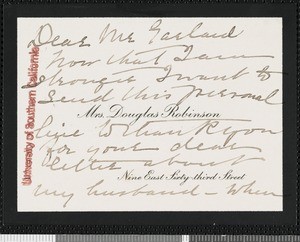 Dear Mr Garland
now that I am
stronger I want to
send this personal
Mrs. Douglas Robinson
line to thank you
for your dear
letter about
Nine East Sixty-third Street
my husband - when
University of Southern California